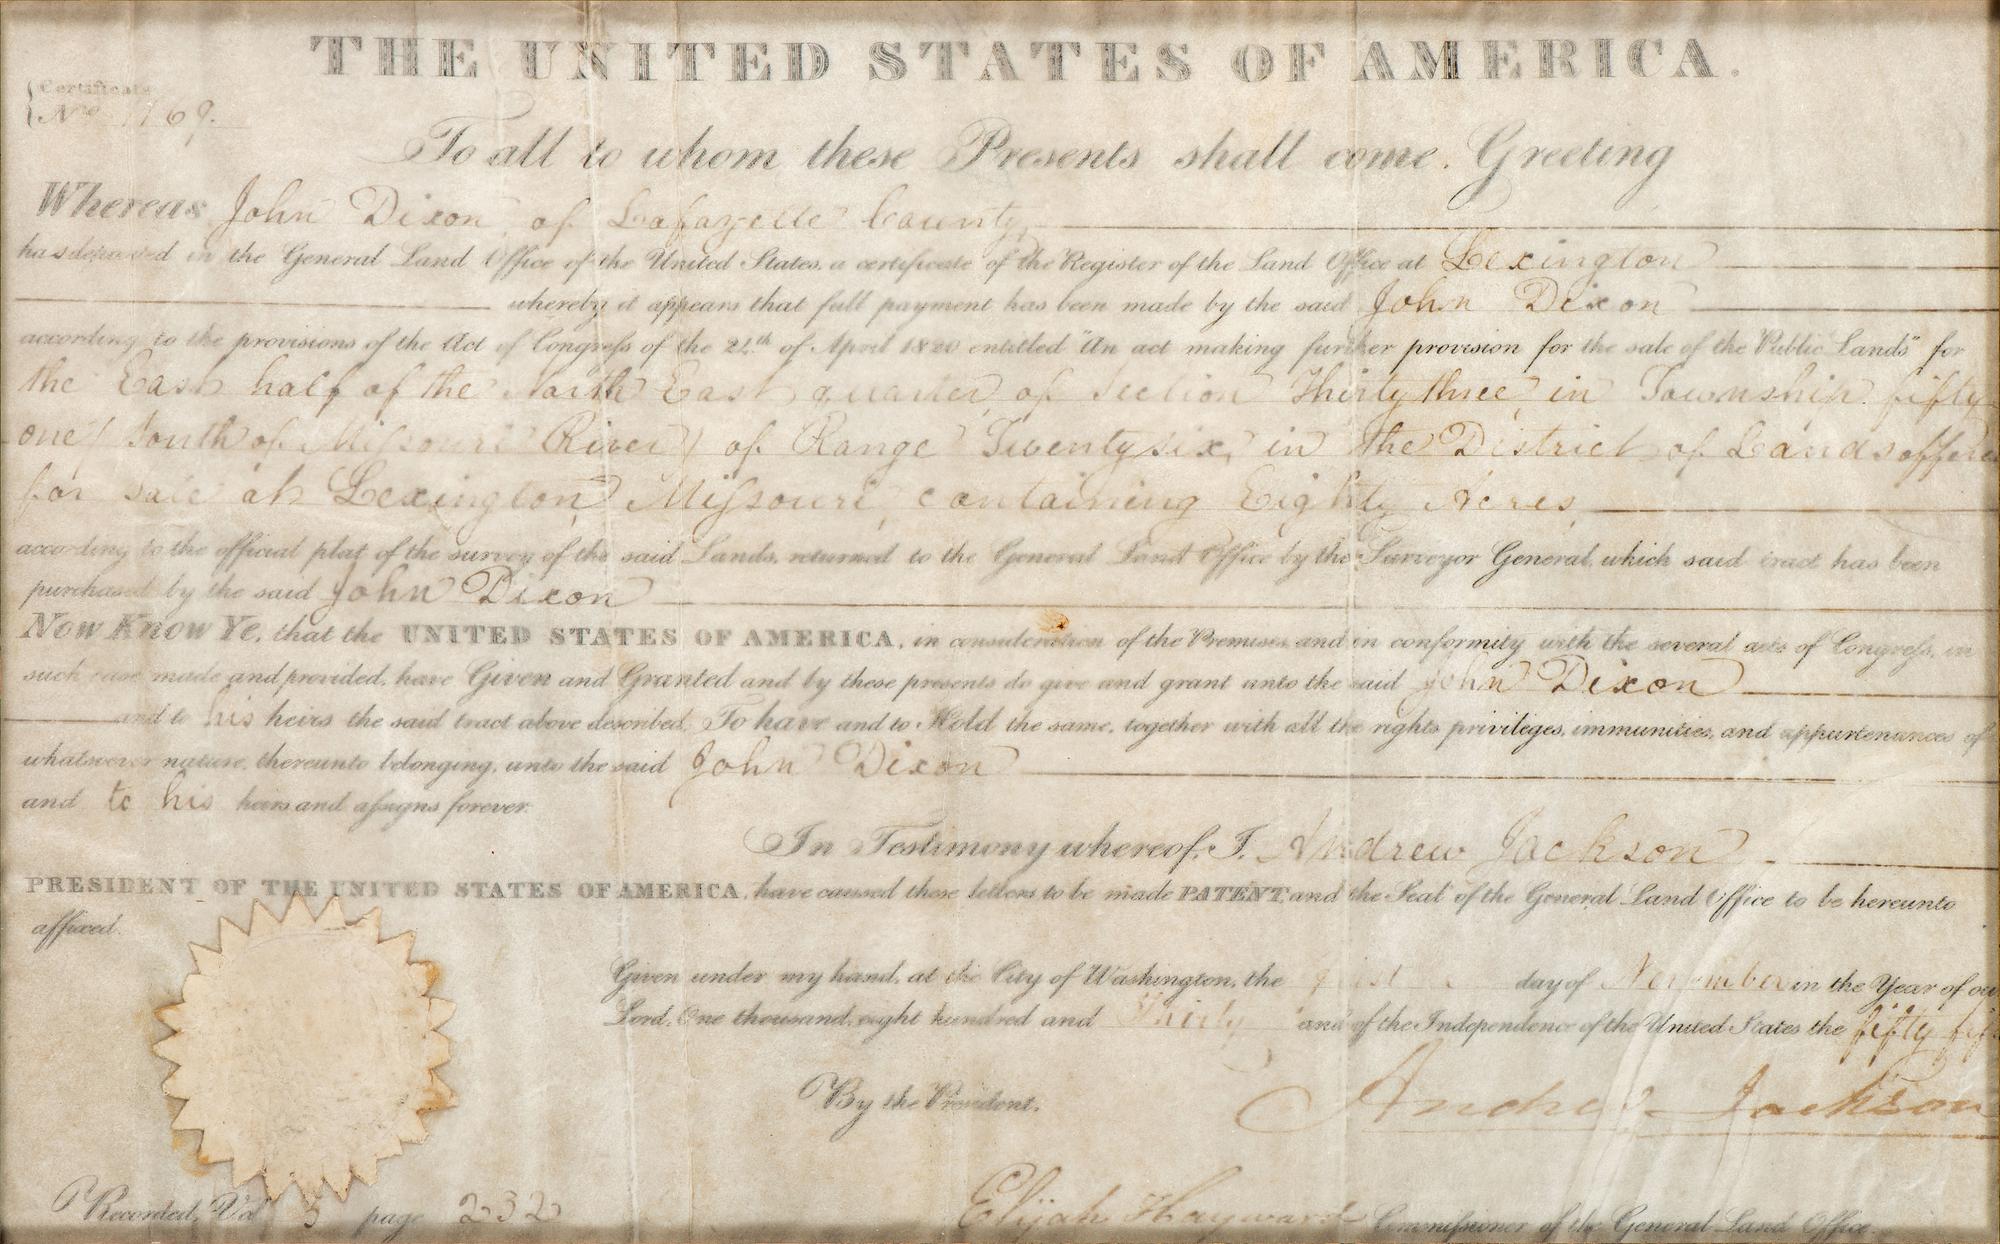 THE UNITED STATES OF AMERICA.
Certificate
No 1169.
To all to whom these Presents shall come. Greeting
Whereas John Dixon, of Lafayette County,
has deposited in the General Land Office of the United States, a certificate of the Register of the Land Office at Lexington
whereby it appears that full payment has been made by the said John Dixon
according to the provisions of the Act of Congreſs of the 24th of April 1820 entitled "An act making further provision for the sale of the Public Lands" for
the East half of the North East quarter, of Section Thirty three, in Township fifty
one (South of Miſsouri River) of Range Twenty six, in the District of Lands offered
for sale at Lexington, Miſsouri, containing Eighty Acres
according to the official plat of the survey of the said Lands, returned to the General Land Office by the Surveyor General, which said tract has been
purchased by the said John Dixon
Now Know Ye, that the UNITED STATES OF AMERICA, in consideration of the Premises, and in conformity with the several acts of Congreſs, in
such case made and provided, have Given and Granted and by these presents do give and grant unto the said John Dixon
and to his heirs the said tract above described, To have and to Hold the same, together with all the rights privileges, immunities, and appurtenances of
whatsoever nature, thereunto belonging, unto the said John Dixon
and to his heirs and aſsigns forever.
In Testimony whereof, I, Andrew Jackson
PRESIDENT OF THE UNITED STATES OF AMERICA, have caused these letters to be made PATENT, and the Seal of the General Land Office to be hereunto
affixed.
Given under my hand, at the City of Washington, the first day of November in the Year of our
Lord, One thousand, eight hundred and Thirty and of the Independence of the United States the fifty fif
By the President,
Andrew Jackson
Elijah Hayward Commiſsioner of the General Land Office.
Recorded, Vol 3 page 232